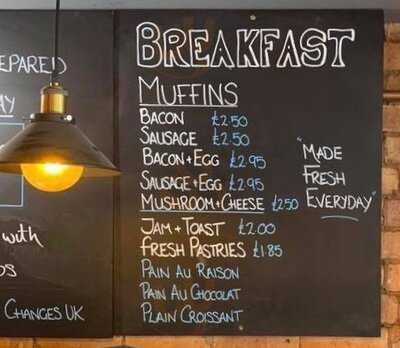 EPARED
AY
with
DS
CHANGES UK
BREAKFAST
MUFFINS
BACON £2.50
SAUSAGE £2.50
BACON+EGG £2.95
SAUSAGE+EGG £2.95
MUSHROOM+CHEESE £2.50
JAM+TOAST £2.00
FRESH PASTRIES £1.85
PAIN AU RAISON
PAIN AU CHOCOLAT
PLAIN CROISSANT
"MADE
FRESH
EVERYDAY"